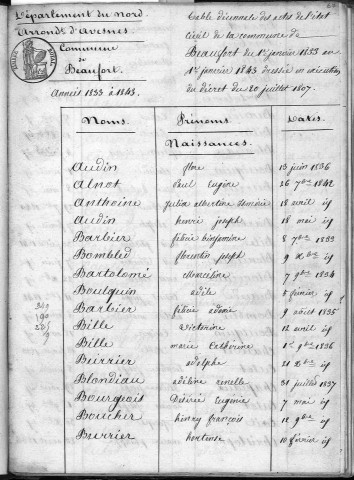 Département du Nord.
Arrond.t d'Avesnes
Commune
de
Beaufort.
Années 1833 à 1843.
Table décennale des actes de l'état
Civil de la commune de
Beaufort du 1er janvier 1833 au
1er janvier 1843 dressée en exécution
du décret du 20 juillet 1807.
Noms. Prénoms. Dates.
Naissances.
Audin flore 13 juin 1836
Alnot Paul Eugène 26 7bre 1842
Anthoine Julia Albertine 18 avril id
Audin henri joseph 18 mai id
Barbier félicie 8 7bre 1833
Bombled florentin joseph 9 Xbre id
Bartolomé Marceline 7 9bre 1834
Boulquin adèle 8 février id
Barbier félicie 9 août 1835
Bille Victorine 12 avril id
Bille marie Catherine 1er 9bre 1836
Burrier adolphe 21 Xbre id
Blondiau adeline 31 juillet 1837
Bourgeois Désirée Eugénie 7 mai id
Boucher henry françois 12 9bre id
Burrier hortense 10 février id